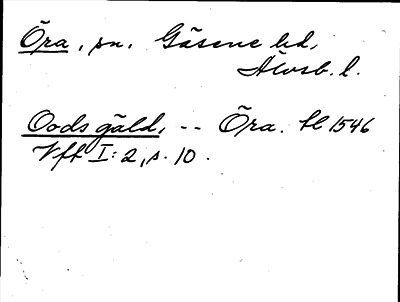 Öra, sn. Gäsene hd,
Älvsb. l.
Oods gäld, -- Öra. hl 1546
Vff I: 2, s. 10.